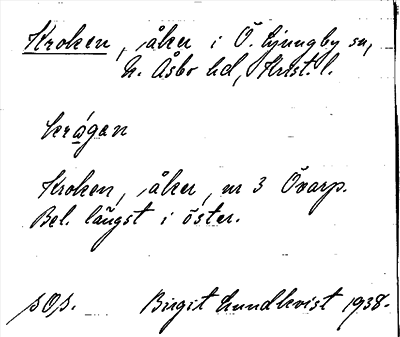 Kroken, åker i Ö. Ljungby sn,
N. Åsbo hd, Krist. l.
krågen
Kroken, åker, nr 3 Övarp.
Bel. längst i öster.
Birgit Lundkvist 1938.